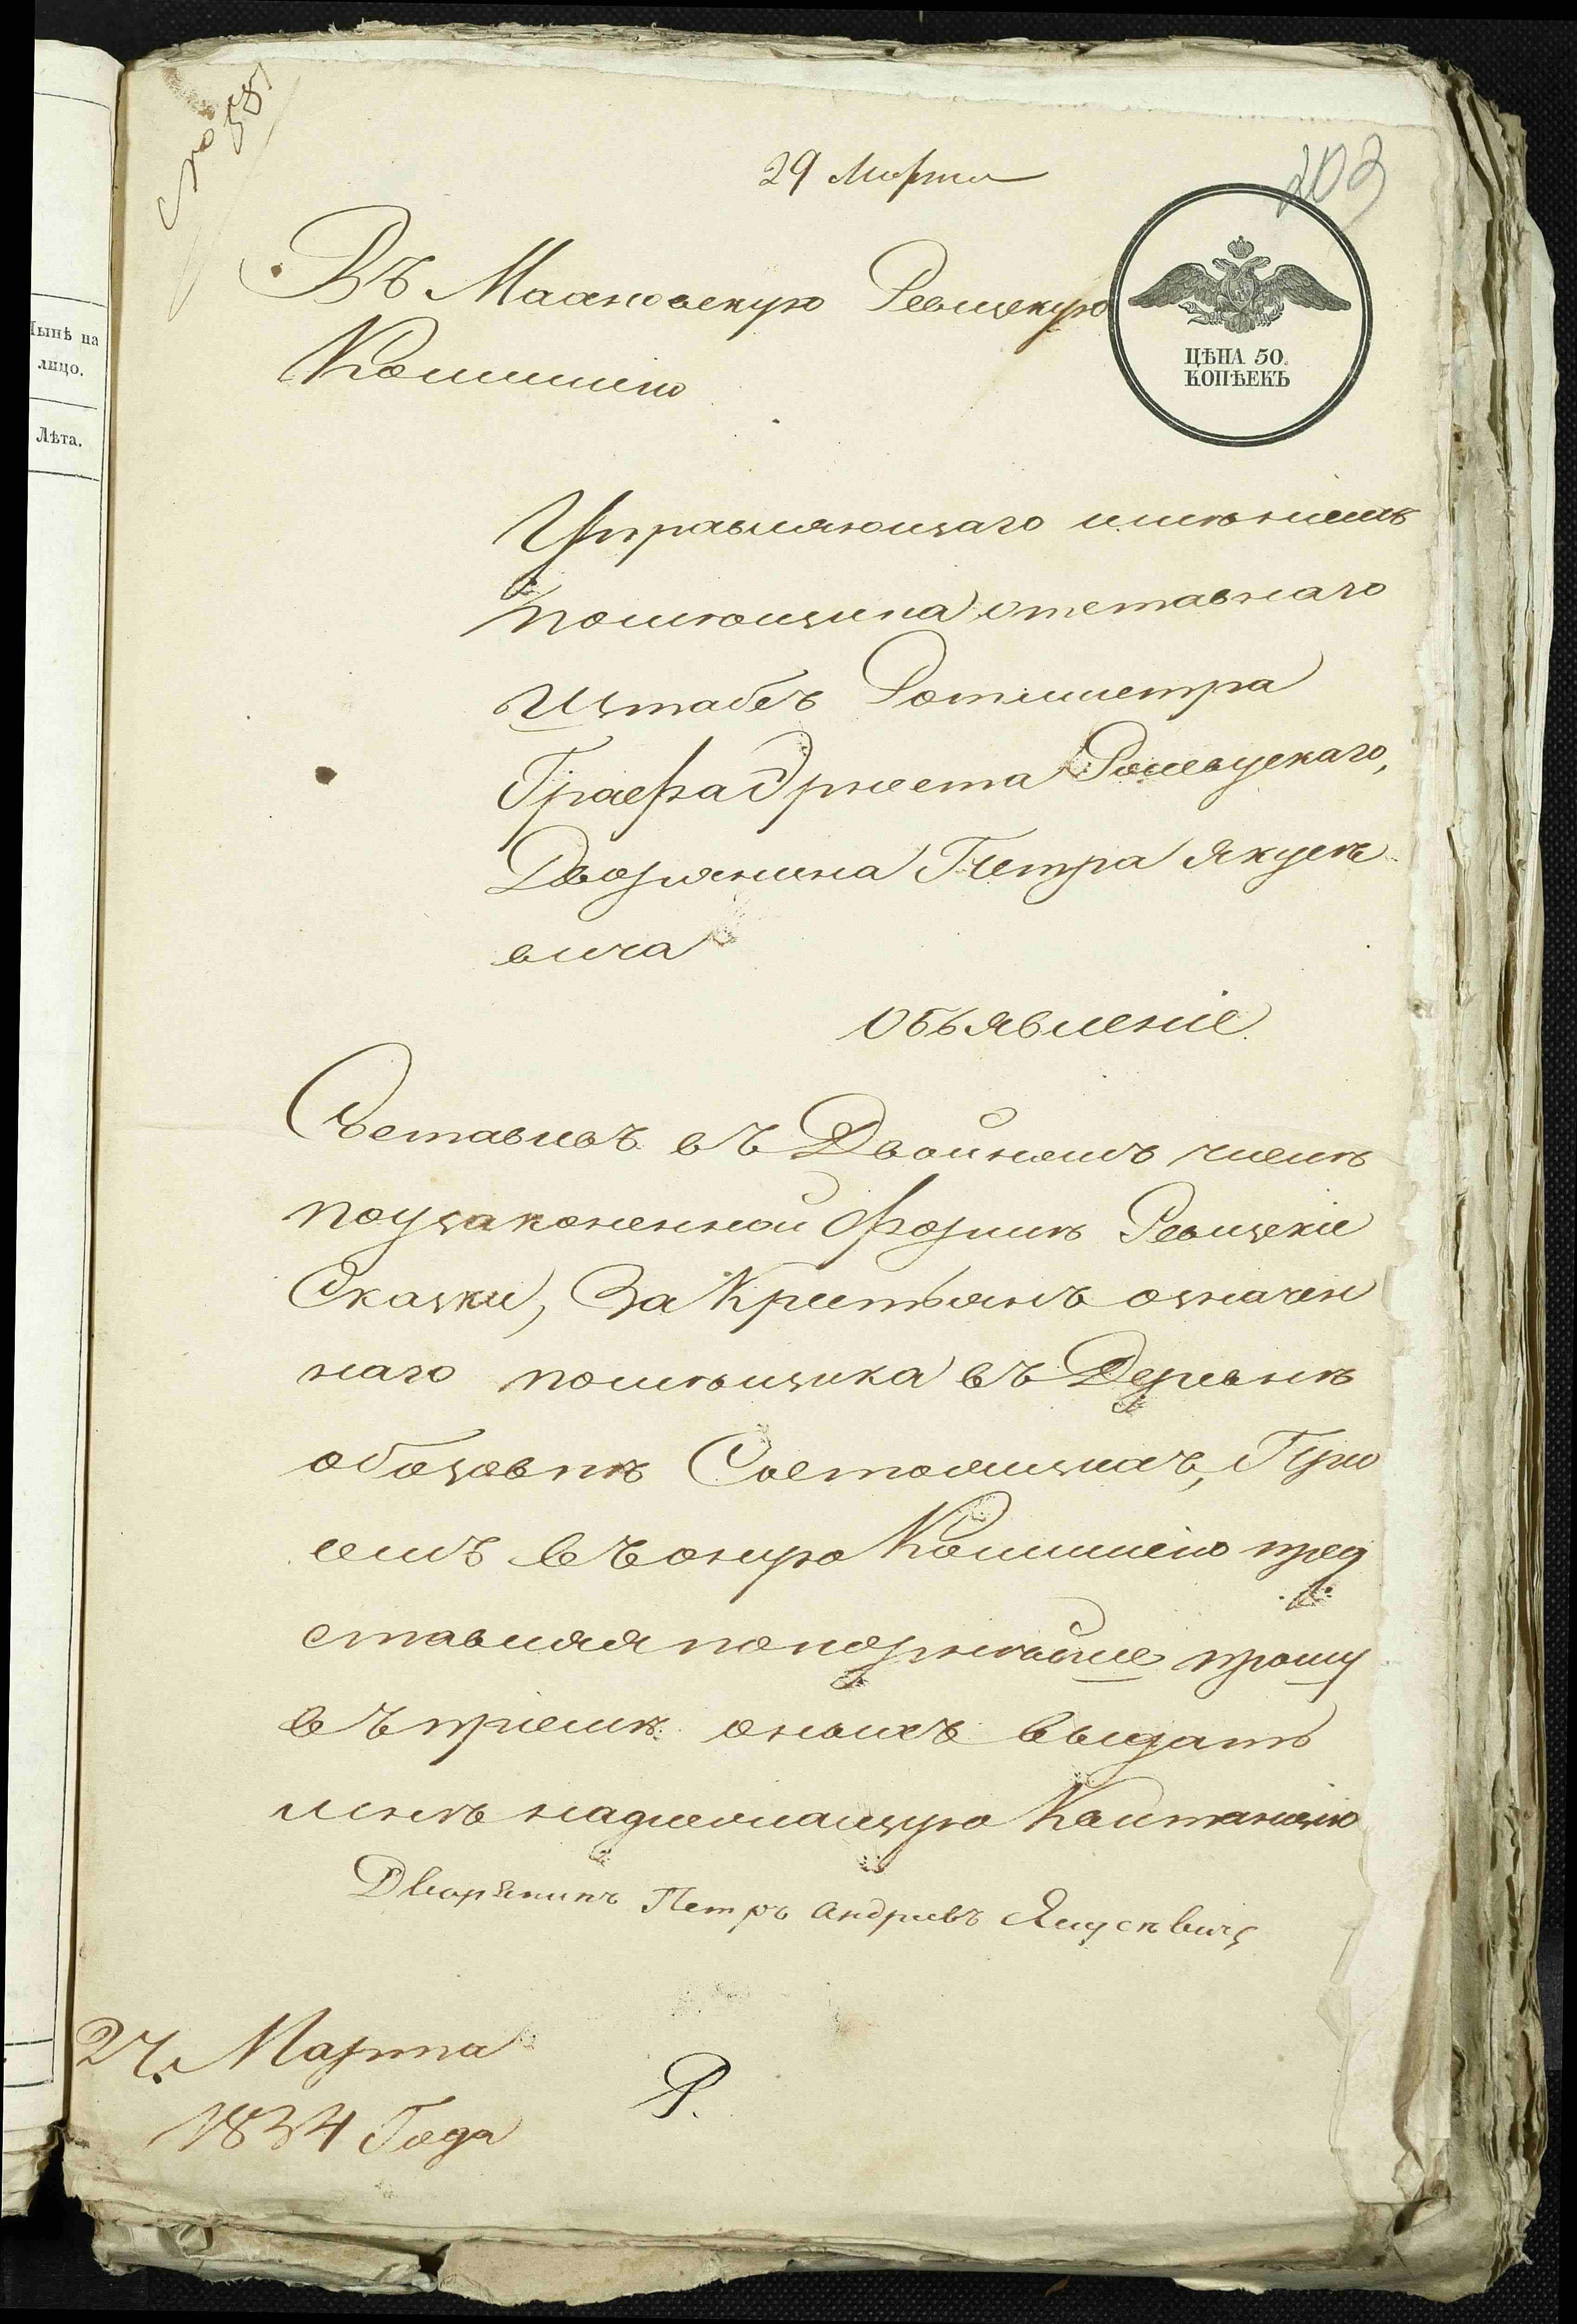 № 58
29 Марта
203
Въ Мглинскую Ревизскую
ЦѢНА 50.
КОПѢЕКЪ
Коммисію
Управляющаго имѣніемъ
помѣщика отставнаго
Штабсъ Ротмистра
Графа Эрнеста
Дворянина Петра Якуск
вича
объявленіе.
Составивъ въ Двойномъ числѣ
поузаконенной Формѣ Ревизскіе
Сказки, За Крестьянъ означен
наго помѣщика въ Деревнѣ
Состоящихъ, При
семъ въ оную Коммисію пред
ставляя попокорнѣйше прошу
въ пріемѣ оныхъ выдать
мнѣ надлежащую Квитанцію
Дворянинъ Петръ Андреевъ
27. Марта
1834 Года
Р.
Нынѣ на
лицо.
Лѣта.